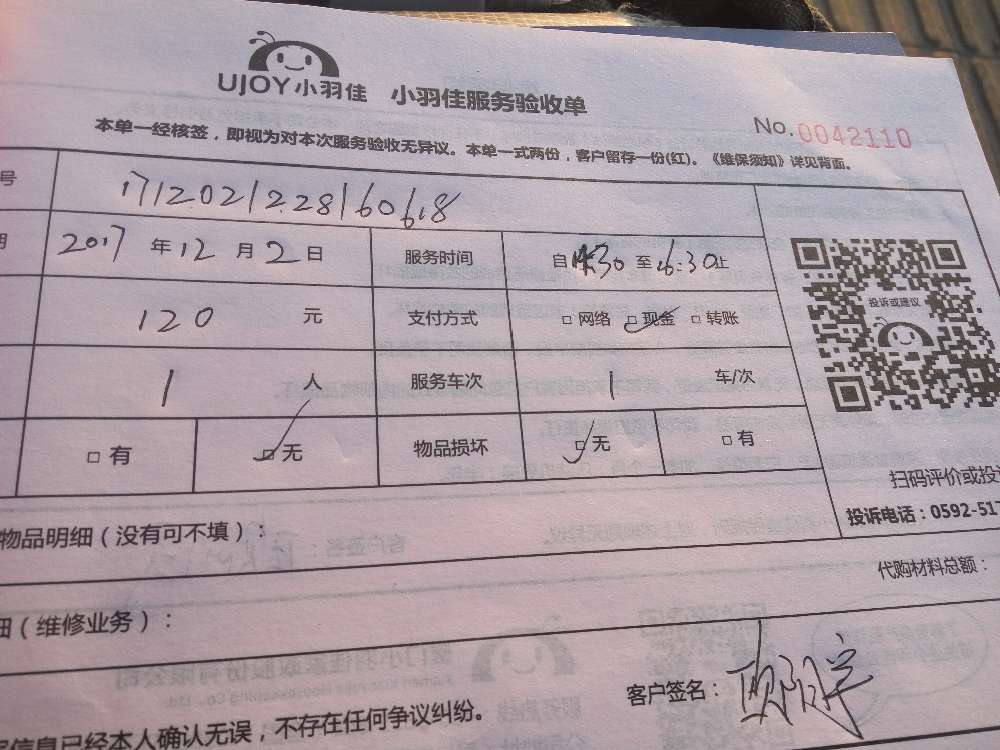 UJOY小羽佳 小羽佳服务验收单
No.0042110
本单一经核签，即视为对本次服务验收无异议。本单一式两份，客户留存一份(红)。《维保须知》详见背面。
号 1712021228160618
期 2017 年 12 月 2 日 服务时间 自 14:30 至 16:30 止
120 元 支付方式 □ 网络 □ 现金 □ 转账
投诉或建议
1 人 服务车次 1 车/次
□ 有 □ 无 物品损坏 □ 无 □ 有
扫码评价或投
投诉电话：0592-517
物品明细（没有可不填）：
代购材料总额：
细（维修业务）：
客户签名：
信息已经本人确认无误，不存在任何争议纠纷。